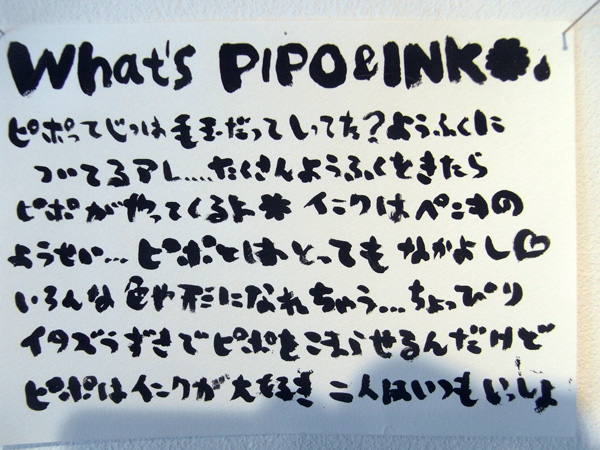 What's PIPO&INK
ピポってじつは毛玉だってしってた?ようふくに
ついてるアレ....たくさんようふくをきたら
ピポがやってくるよ✽ インクはペンキの
ようせい... ピポとはとっても なかよし♡
いろんな色や形になれちゃう...ちょっぴり
イタズラずきでピポをこまらせるんだけど
ピポはインクが大好き 二人はいつもいっしょ